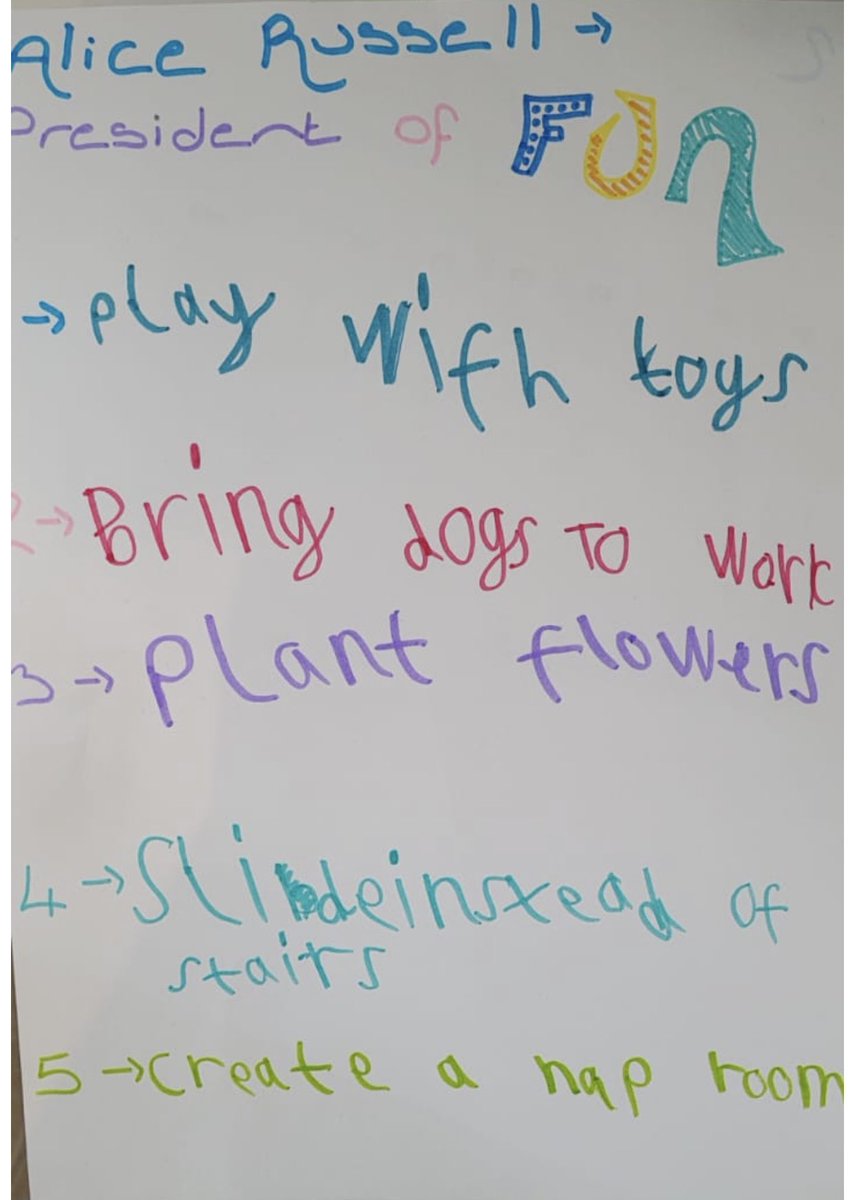 Alice Russell →
President of FUn
→ play with toys
2 → Bring dogs TO work
3 → plant flowers
4 → Slide instead of
stairs
5 → create a nap room